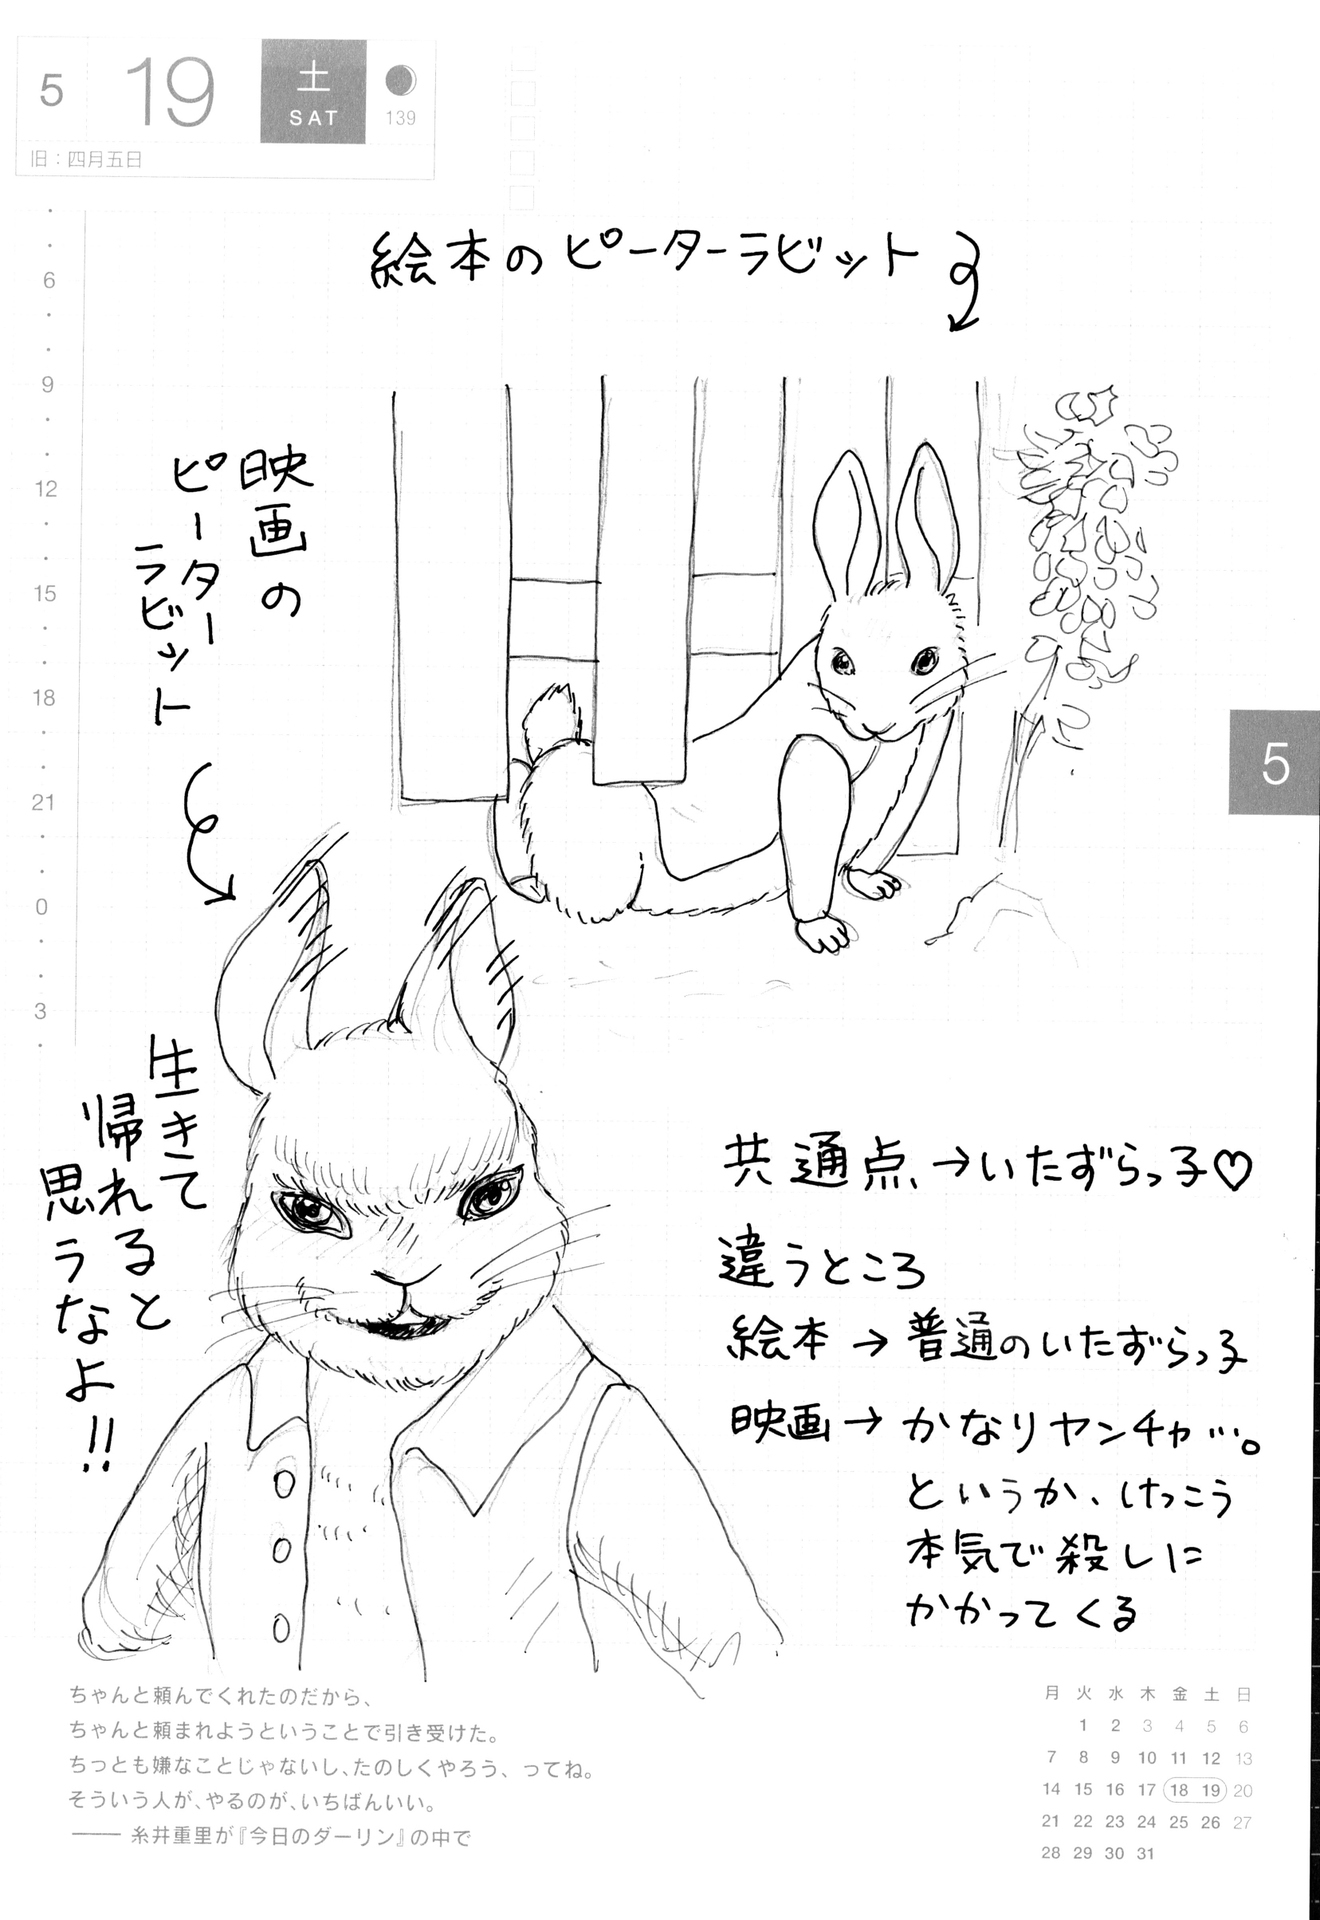 5 19 土 SAT 139
旧：四月五日
絵本のピーターラビット
映画の
ピーター
ラビット
6
9
12
15
18
21
0
3
5
生きて
帰れると
思うなよ!!
共通点→いたずらっ子♡
違うところ
絵本→普通のいたずらっ子
映画→かなりヤンチャ…。
というか、けっこう
本気で殺しに
かかってくる
ちゃんと頼んでくれたのだから、
ちゃんと頼まれようということで引き受けた。
ちっとも嫌なことじゃないし、たのしくやろう、ってね。
そういう人が、やるのが、いちばんいい。
── 糸井重里が『今日のダーリン』の中で
月 火 水 木 金 土 日
1 2 3 4 5 6
7 8 9 10 11 12 13
14 15 16 17 18 19 20
21 22 23 24 25 26 27
28 29 30 31